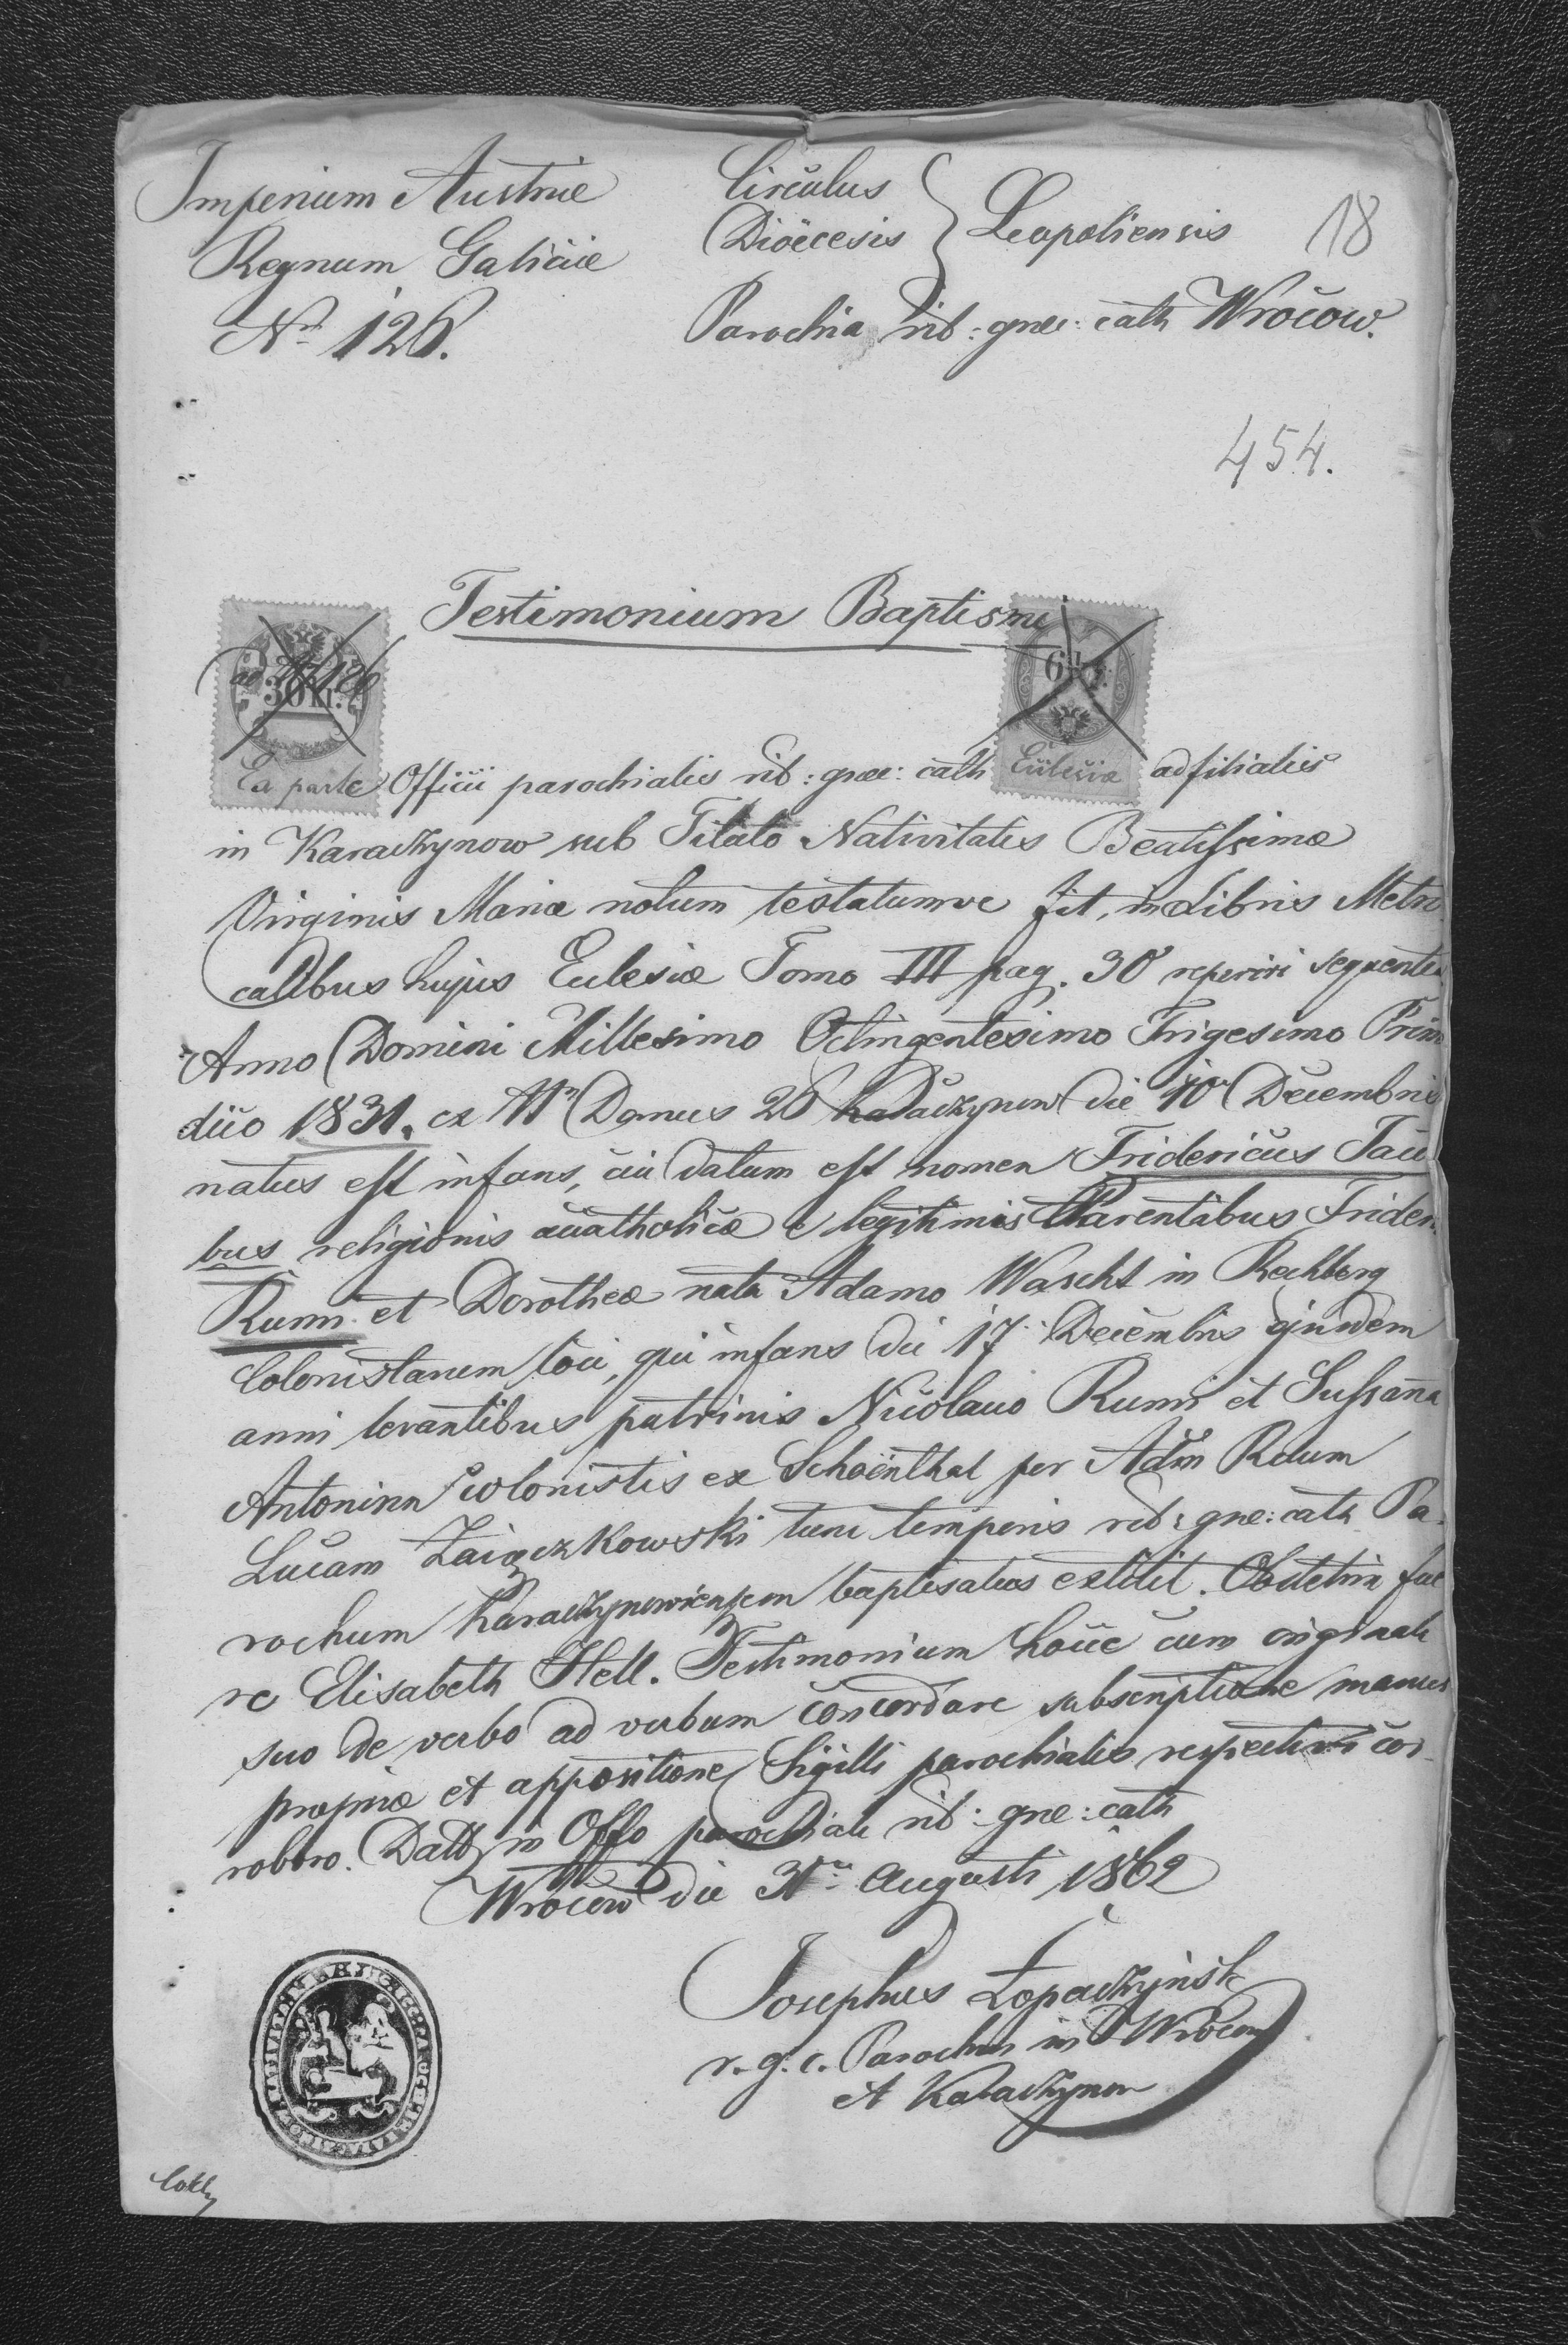 Imperium Austriæ
Circulus
Leopoliensis
18
Regnum Galiciæ
Diöecesis
Nro 126.
Parochia rit: græc: cath Wrocow.
454.
Testimonium Baptismi
ad Nr 126
30 kr.
6
Ex parte Officii parochialis rit: græc: cath Eclesiæ ad filialis
in Karaczynow sub Titulo Nativitatis Beatissimæ
Virginis Mariæ notum testatumve fit, in Libris Metri
calibus hujus Eclesiæ Tomo III pag. 30 reperiri sequentia
Anno Domini Millesimo Octingentesimo Trigesimo Primo
dico 1831. ex Nro Domus 26 Karaczynow die 10 Decembris
natus est infans, cui datum est nomen Fridericus Jaco
bus religionis acatholicæ e legitimis Parentibus Frider.
Rumi et Dorothea nata Adamo Wascht in Rechberg
Colonistarum loci, qui infans die 17 Decembris ejusdem
anni levantibus patrinis Nicolauo Rumi et Sussanna
Antonina colonistis ex Schoenthal per Adm Rdum
Lucam Zaiączkowski tunc temporis rit: græ: cath Pa-
rochum Karaczynoviensem baptisatus extitit. Obstetrix fue
re Elisabeth Hell. Testimonium hocce cum originale
suo de verbo ad verbum concordare subscriptione manus
propriæ et appositione Sigilli parochialis respectivi cor-
roboro. Datt in Offo parochiali rit: græ: cath
Wrocow die 31 Augusti 1862
Josephus Łopaczyńsk
r. g. c. Parochus in Wrocow
et Karaczynow